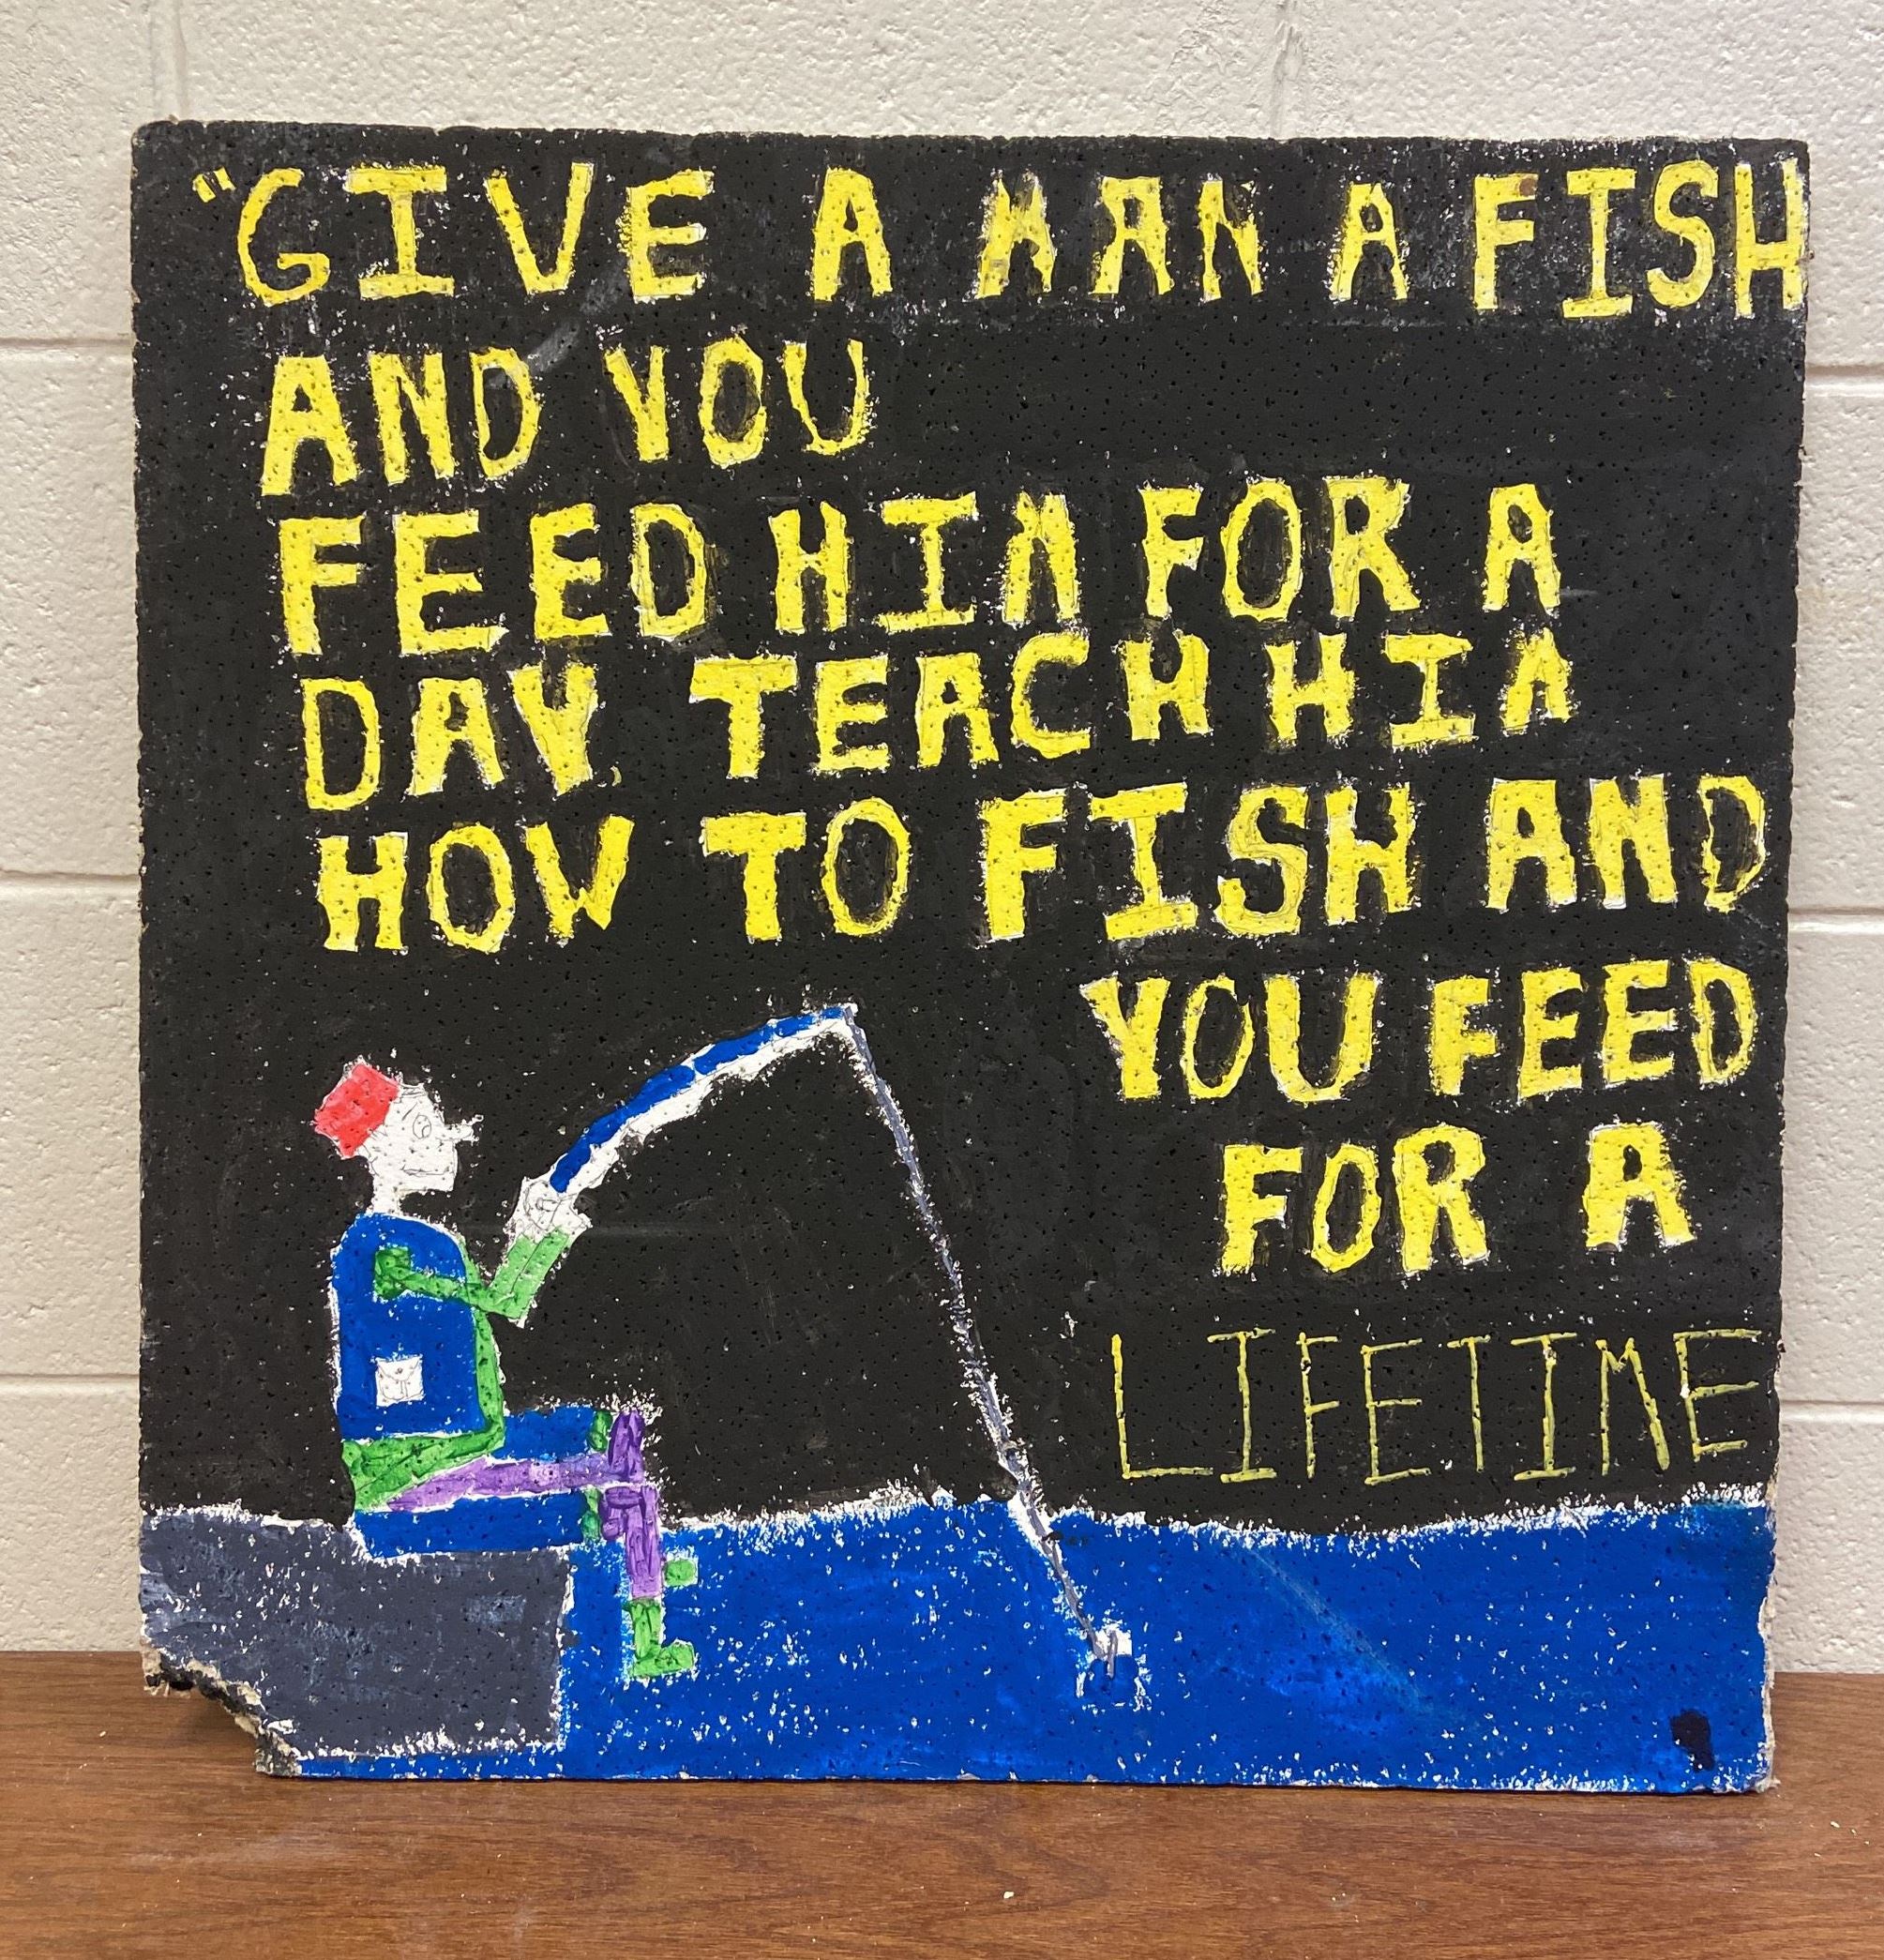 "GIVE A MAN A FISH
AND YOU
FEED HIM FOR A
DAY, TEACH HIM
HOW TO FISH AND
YOU FEED
FOR A
LIFETIME